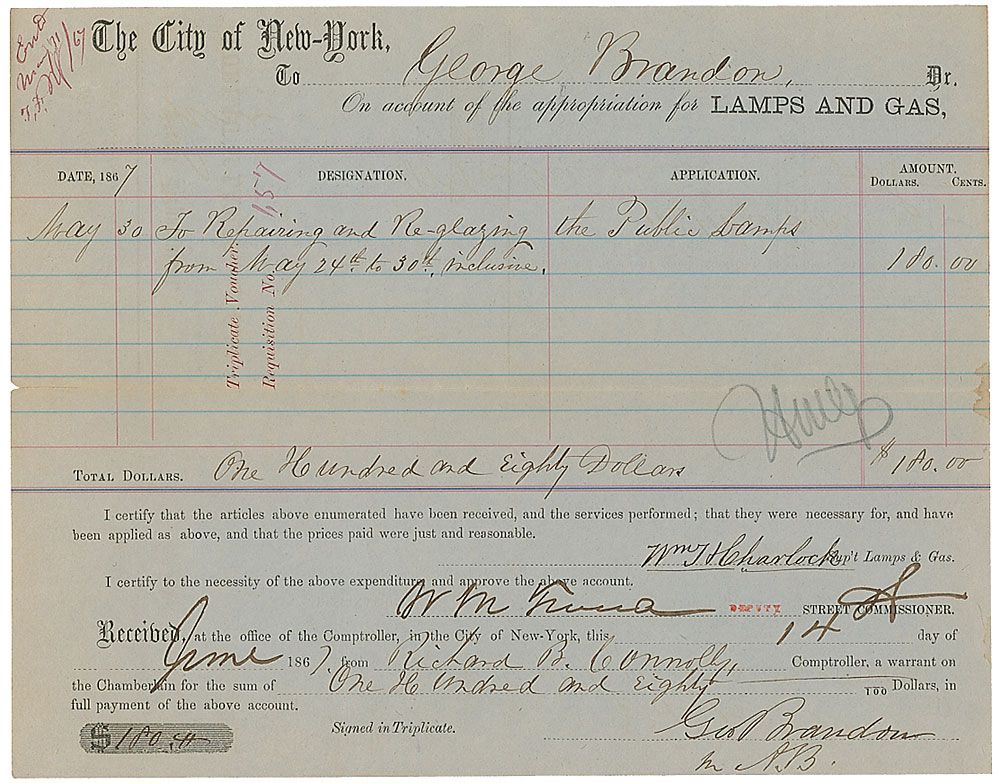 Ent'd
May 31/67
The City of New-York,
To George Brandon, Dr.
On account of the appropriation for LAMPS AND GAS,
DATE, 1867 DESIGNATION. APPLICATION. AMOUNT.
DOLLARS. CENTS.
May 30 To Repairing and Re-glazing the Public Lamps
from May 24th to 30th, inclusive. 180. 00
Triplicate Voucher.
Requisition No. 157
TOTAL DOLLARS. One Hundred and Eighty Dollars $180.00
I certify that the articles above enumerated have been received, and the services performed; that they were necessary for, and have
been applied as above, and that the prices paid were just and reasonable.
Wm T H Charlock Sup't Lamps & Gas.
I certify to the necessity of the above expenditure and approve the above account.
W M DEPUTY STREET COMMISSIONER.
Received, at the office of the Comptroller, in the City of New-York, this 14 day of
June 1867, from Richard B. Connolly, Comptroller, a warrant on
the Chamberlain for the sum of One Hundred and Eighty 100 Dollars, in
full payment of the above account.
$180.
Signed in Triplicate.
Geo Brandon
A.B.